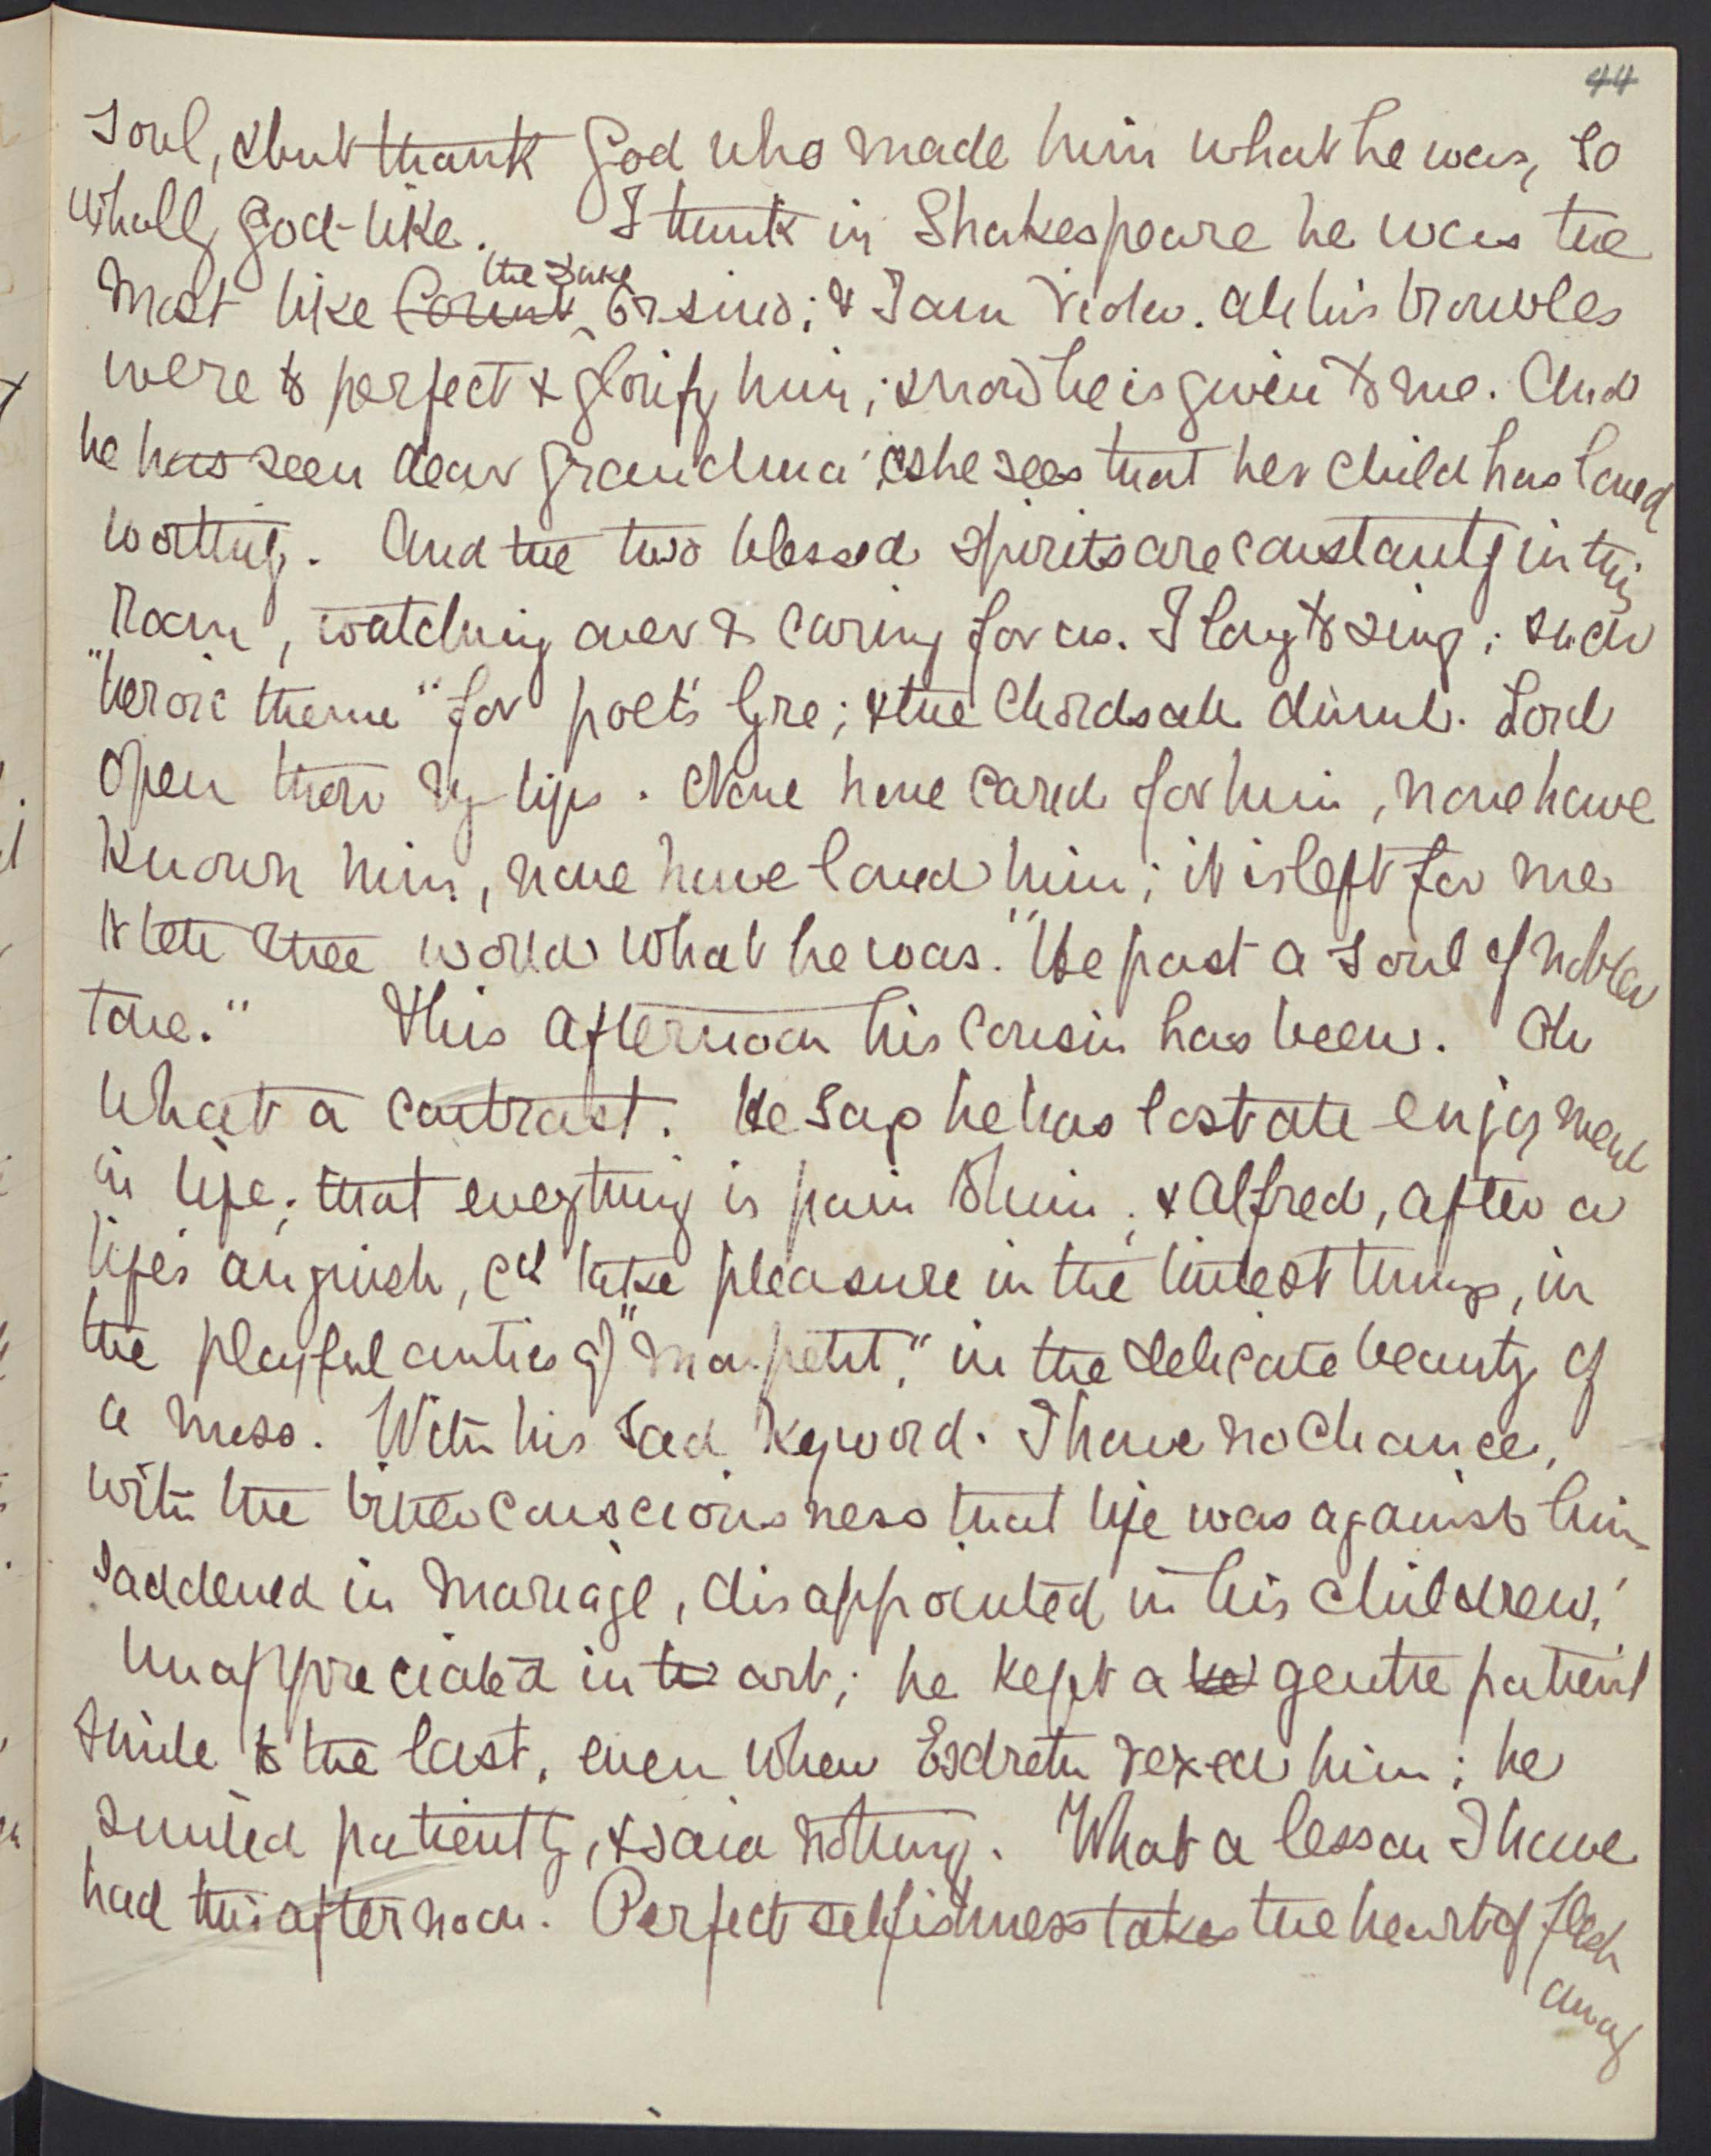 44
soul, & but thank God who made him what he was, so
wholly God-like. I think in Shakespeare he was the
most like Count the Duke Orsino; & I am Viola. All his troubles
were to perfect & glorify him; & now he is given to me. And
he has seen dear grandma & she sees that her child has loved
worthily. And the two blessed spirits are constantly in this
room, watching over & caring for us. I long to sing; such
"heroic theme" for poet's lyre; & the chords all dumb. Lord
open thou my lips. None have cared for him, none have
known him, none have loved him; it is left for me
to tell the world what he was. "He past a soul of nobler
tone." This afternoon his cousin has been. Oh
what a contrast. He says he has lost all enjoyment
in life; that everything is pain to him; & Alfred, after a
life's anguish, cd take pleasure in the littlest things, in
the playful antics of "mon petit," in the delicate beauty of
a moss. With his sad keyword. I have no chance,
with the bitter consciousness that life was against him
saddened in marriage, disappointed in his children,
unappreciated in art; he kept a gentle patient
smile to the last, even when vexed him; he
smiled patiently, & said nothing. What a lesson I have
had this afternoon. Perfect selfishness takes the heart of flesh
away